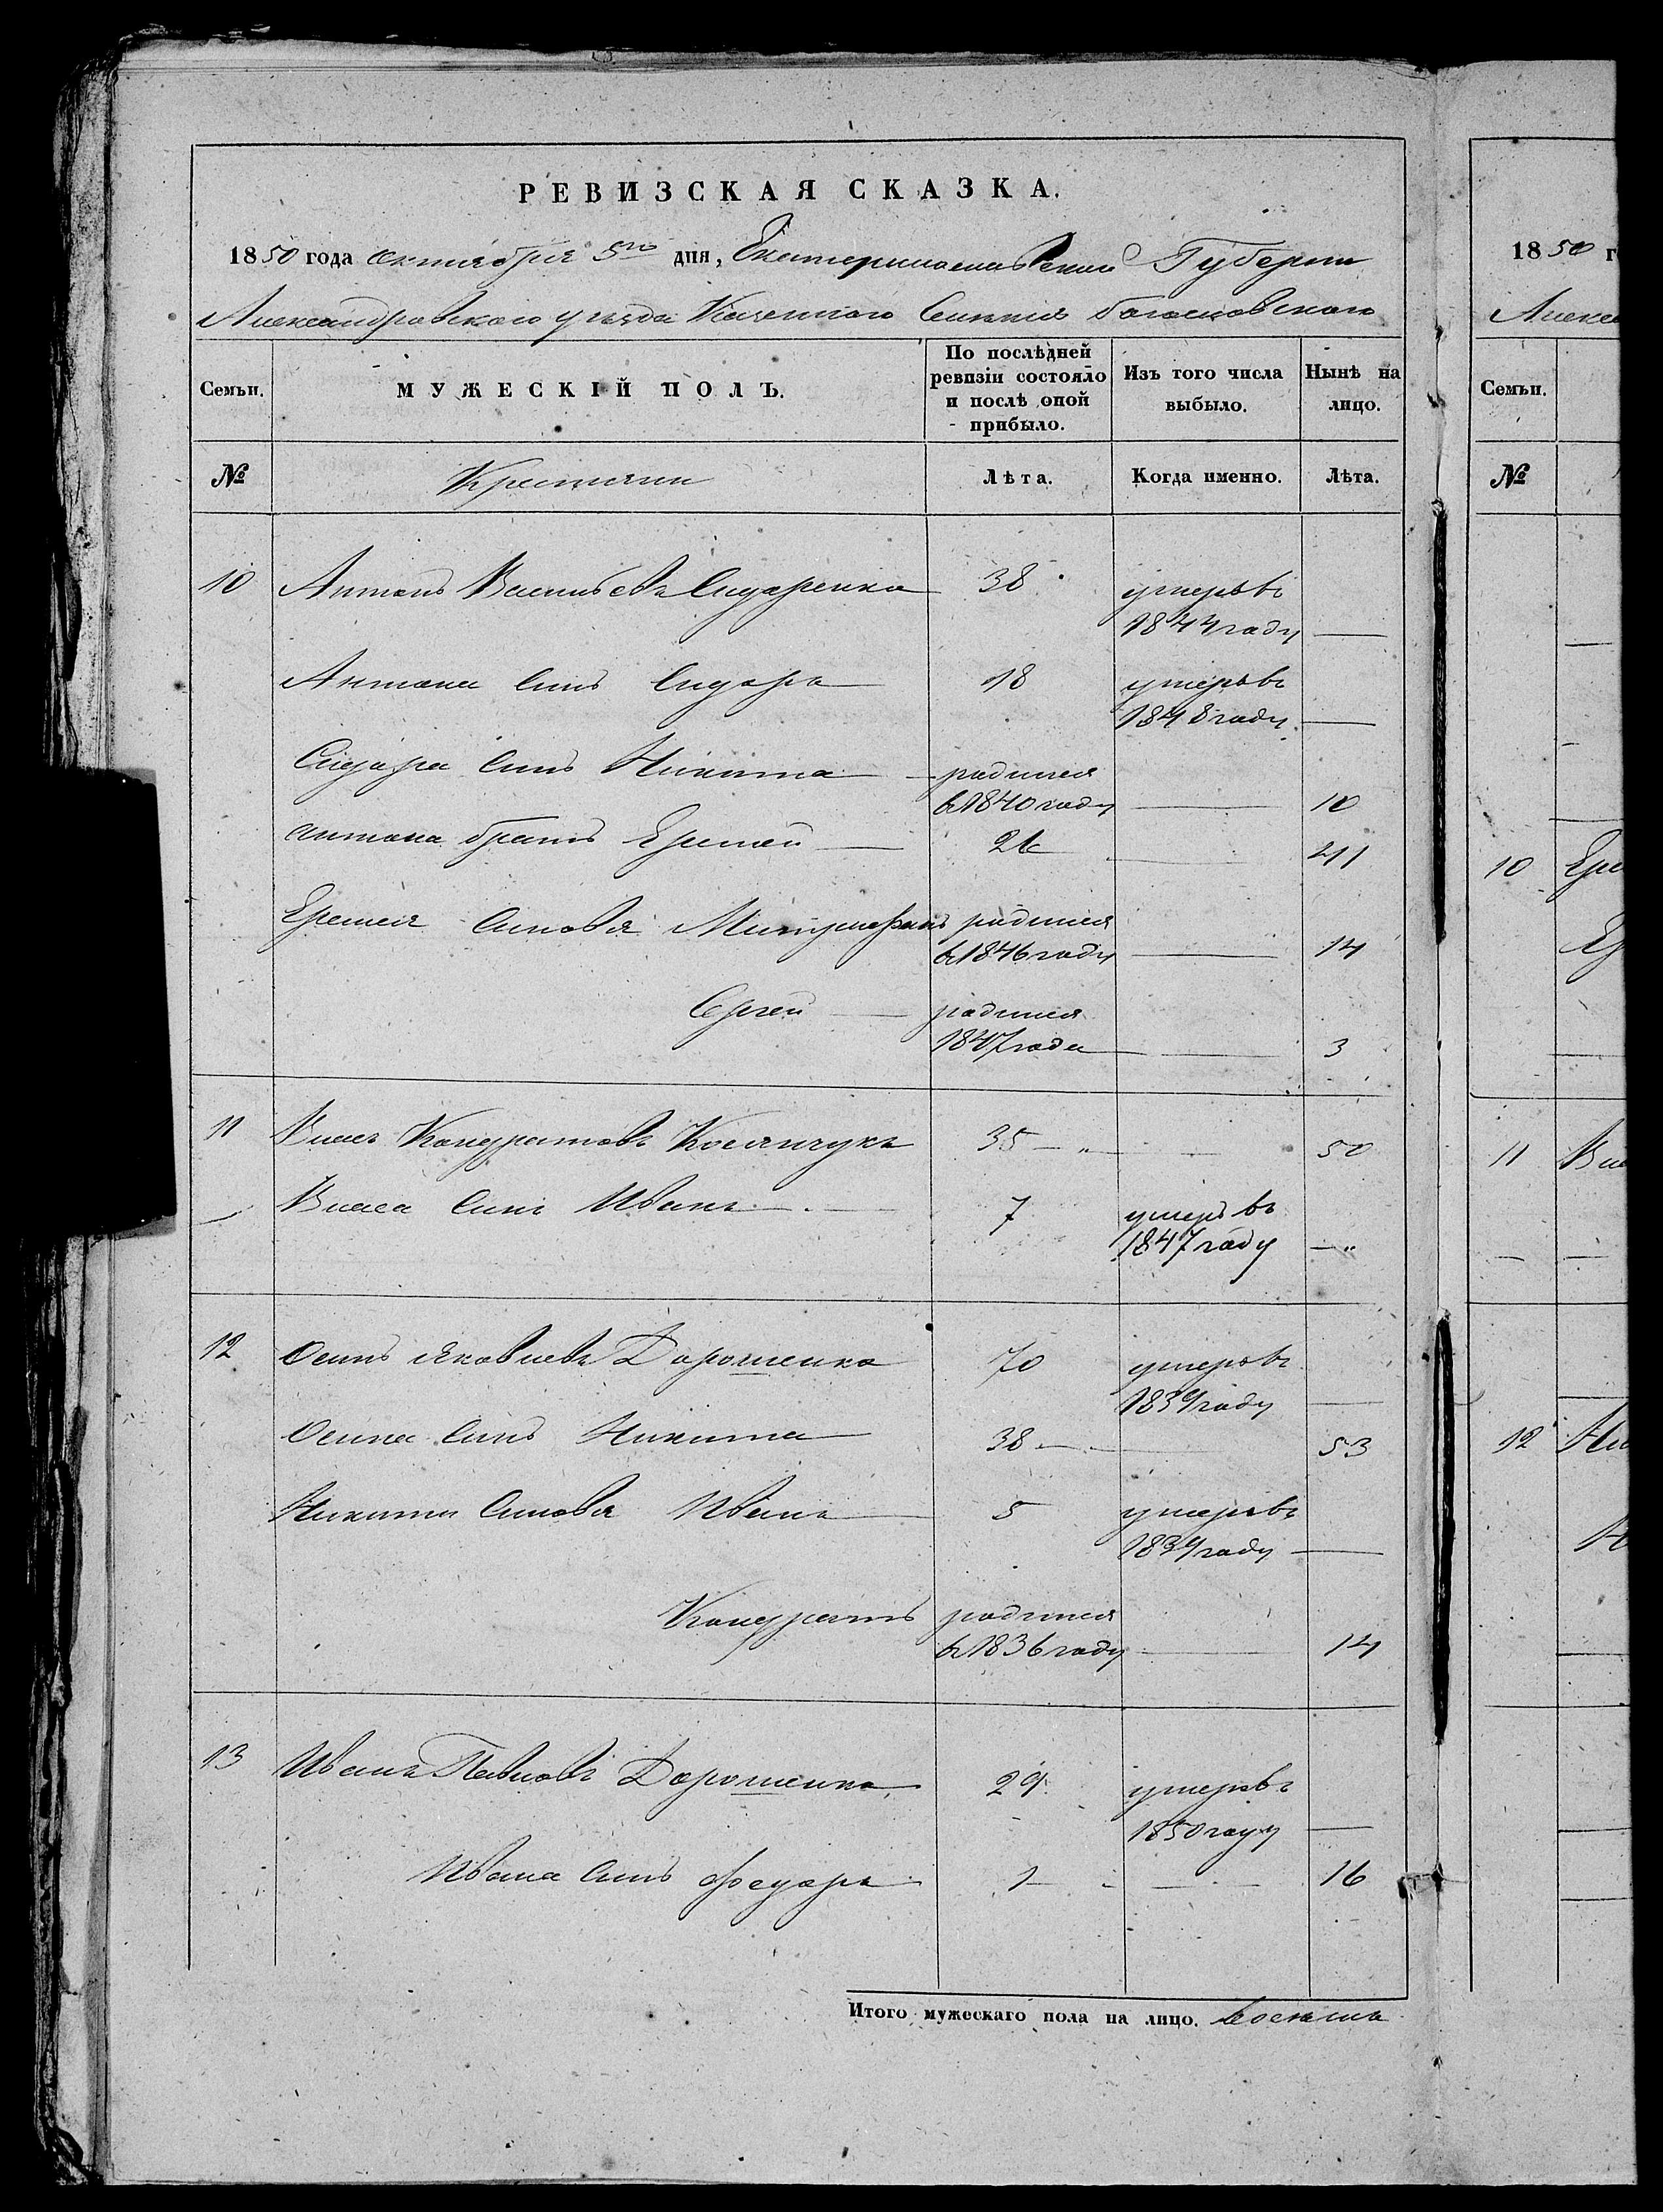 РЕВИЗСКАЯ СКАЗКА.
1850 года октября 5го дня, Екатеринославской Губерни
Александровского уезда Казенного Селения
Семьи. МУЖЕСКІЙ ПОЛЪ. По послѣдней ревизіи состояло и послѣ оной прибыло. Изъ того числа выбыло. Нынѣ на лицо.
№ Крестьяни Лѣта. Когда именно. Лѣта.
10 Антонъ Васильевъ Сидаренко 38 умеръ въ
1844 году —
Антона Синъ Сидоръ 18 умеръ въ
1848 году —
Сидора Синъ Никита — родился
в 1840 году — 10
Антона братъ Еремей — 26 — 41
Еремея Синовя Митрофанъ родился
в 1846 году — 14
Сергей — родился
1847 года — 3
11 Власъ Кондратовъ 35 — 50
Власа Синъ Иванъ — 7 умеръ въ
1847 году —
12 Осипъ Яковлевъ Дорошенко 70 умеръ въ
1839 году —
Осипа Синъ Никита 38 — 53
Никити Синовя Иванъ 5 умеръ въ
1839 году —
Кондратъ родился
в 1836 году — 14
13 Иванъ Павловъ Дорошенко 29 умеръ въ
1850 году —
Ивана Синъ Федоръ 1 — 16
Итого мужескаго пола на лицо. восемь
1850 г
Алекса
Семьи.
№
10 Ере
Ер
11 Вла
12 Ни
Н